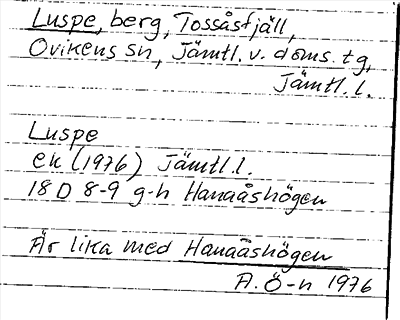 Luspe, berg, Tossåsfjäll,
Ovikens sn, Jämtl. v. doms. tg,
Jämtl. l.
Luspe
ek (1976) Jämtl. l.
18 D 8-9 g-h Hanaåshögen
Är lika med Hanaåshögen
A. Ö-n 1976